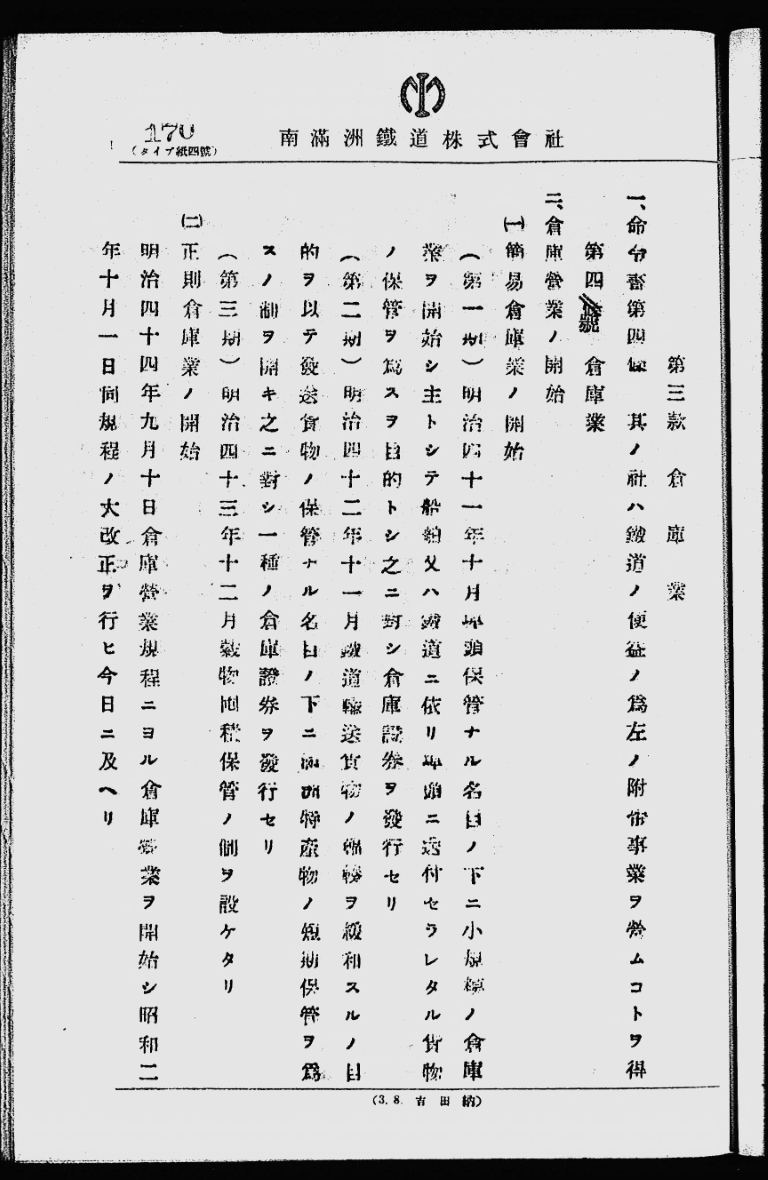 170
(タイプ紙四號)
南滿洲鐵道株式會社
第三款 倉庫業
一、命令書第四條 其ノ社ハ鐵道ノ便益ノ爲左ノ附帶事業ヲ營ムコトヲ得
第四號 倉庫業
二、倉庫營業ノ開始
㈠簡易倉庫業ノ開始
(第一期)明治四十一年十月埠頭保管ナル名目ノ下ニ小規模ノ倉庫
業ヲ開始シ主トシテ船舶又ハ鐵道ニ依リ埠頭ニ送付セラレタル貨物
ノ保管ヲ爲スヲ目的トシ之ニ對シ倉庫證券ヲ發行セリ
(第二期)明治四十二年十一月鐵道輸送貨物ノ輻輳ヲ緩和スルノ目
的ヲ以テ發送貨物ノ保管ナル名目ノ下ニ滿洲特產物ノ短期保管ヲ爲
スノ制ヲ開キ之ニ對シ一種ノ倉庫證券ヲ發行セリ
(第三期)明治四十三年十二月穀物囤積保管ノ制ヲ設ケタリ
㈡正則倉庫業ノ開始
明治四十四年九月十日倉庫營業規程ニヨル倉庫營業ヲ開始シ昭和二
年十月一日同規程ノ大改正ヲ行ヒ今日ニ及ヘリ
(3. 8. 吉田納)